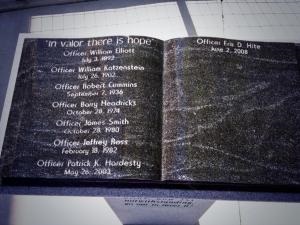 "in valor there is hope"
Officer William Elliott
July 3, 1892
Officer William Katzenstein
July 26, 1902
Officer Robert Cummins
September 7, 1936
Officer Barry Headricks
October 28, 1974
Officer James Smith
October 28, 1980
Officer Jeffrey Ross
February 18, 1982
Officer Patrick K. Hardesty
May 26, 2003
Officer Erik D. Hite
June 2, 2008
notwithstanding